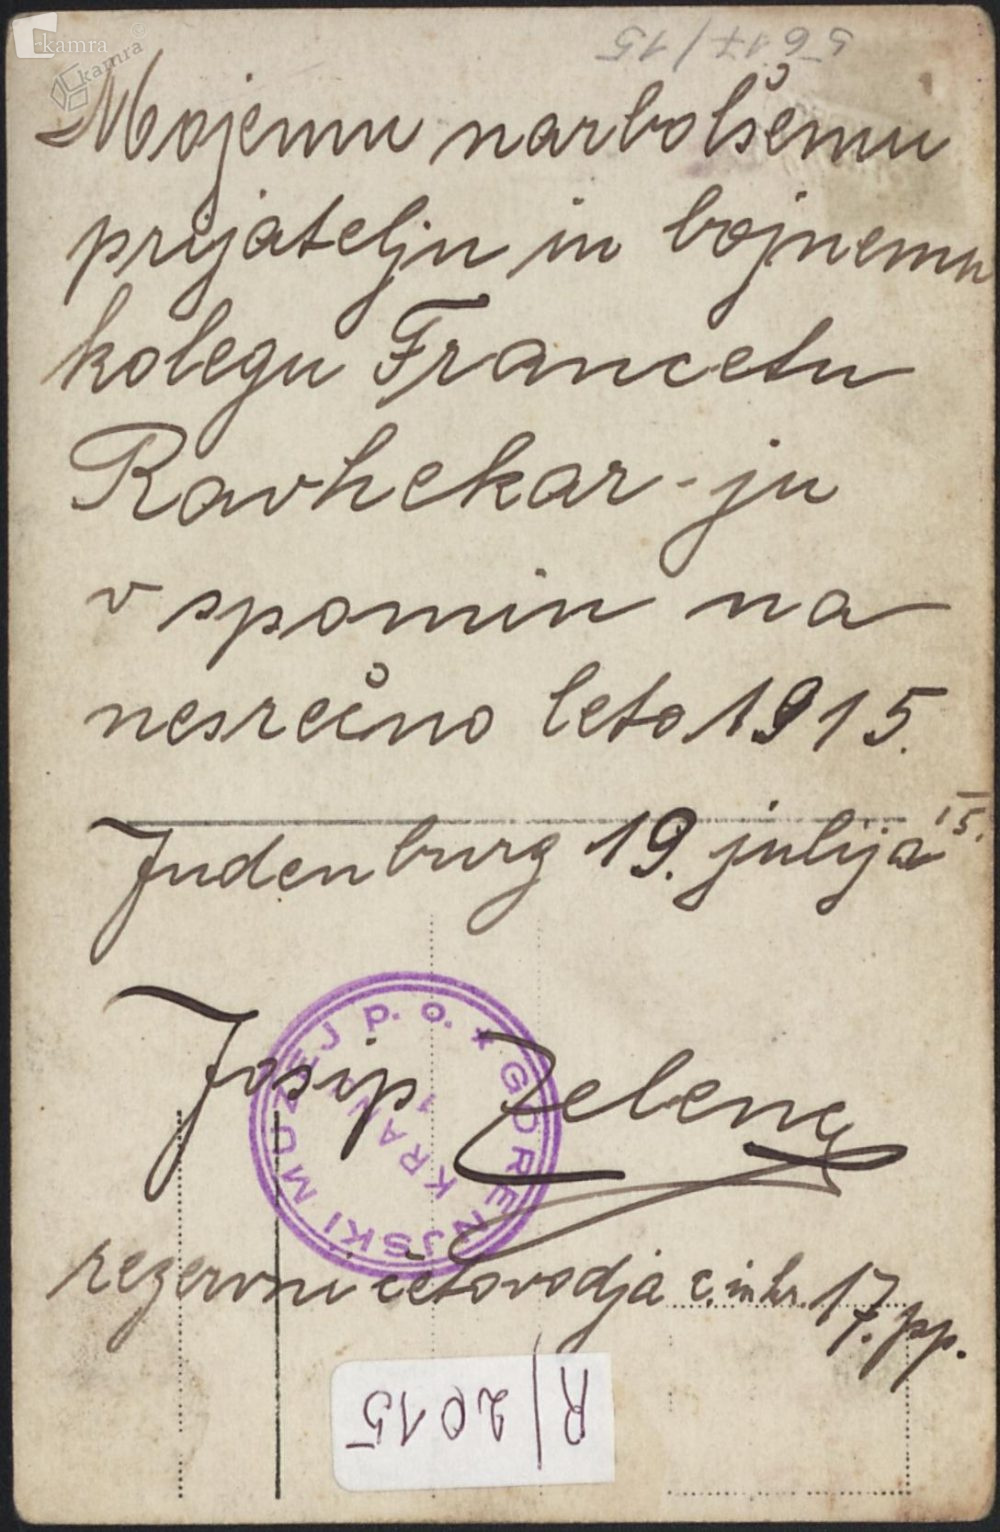 kamra
kamra
5617/15
Mojemu narbolšemu
prijatelju in bojnemu
kolegu Francetu
Ravhekar-ju
v spomin na
nesrečno leto 1915.
Judenburg 19. julija 15.
Josip Zelenc
rezervni četovodja c. in kr. 17. pp.
GORENJSKI MUZEJ p. o. *
KRANJ
R/2015